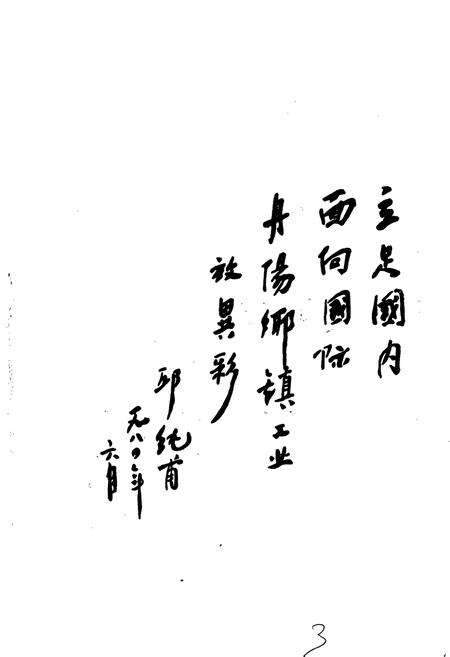 立足國内
面向國际
丹陽鄉镇工业
放異彩
邱纯甫
一九八〇年
六月
3